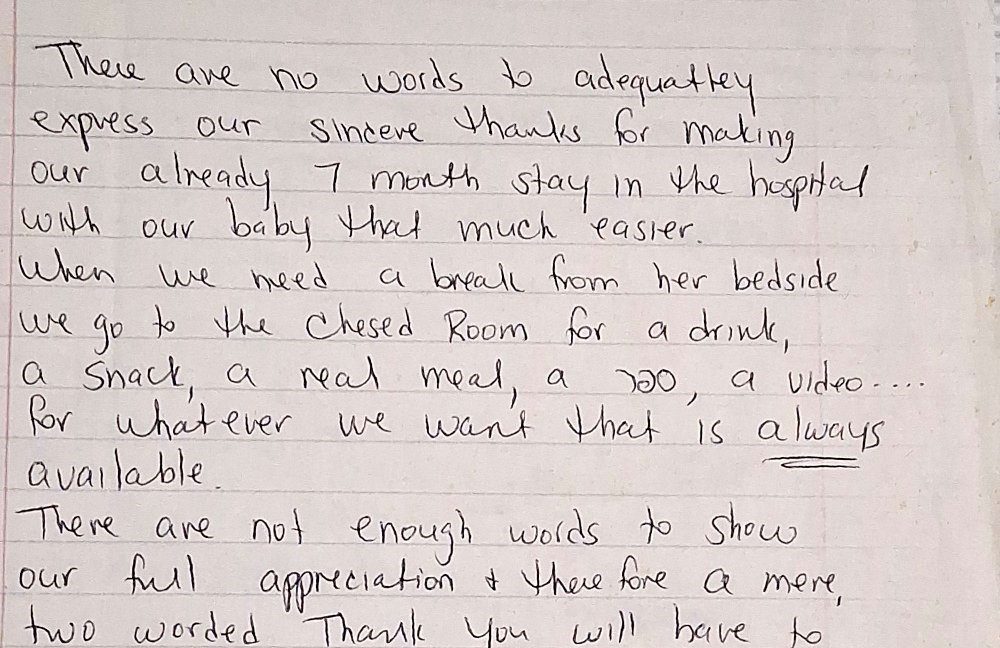 There are no words to adequatley
express our sincere thanks for making
our already 7 month stay in the hospital
with our baby that much easier.
When we need a break from her bedside
we go to the Chesed Room for a drink,
a snack, a real meal, a ספר, a video....
for whatever we want that is always
available.
There are not enough words to show
our full appreciation & therefore a mere,
two worded Thank You will have to